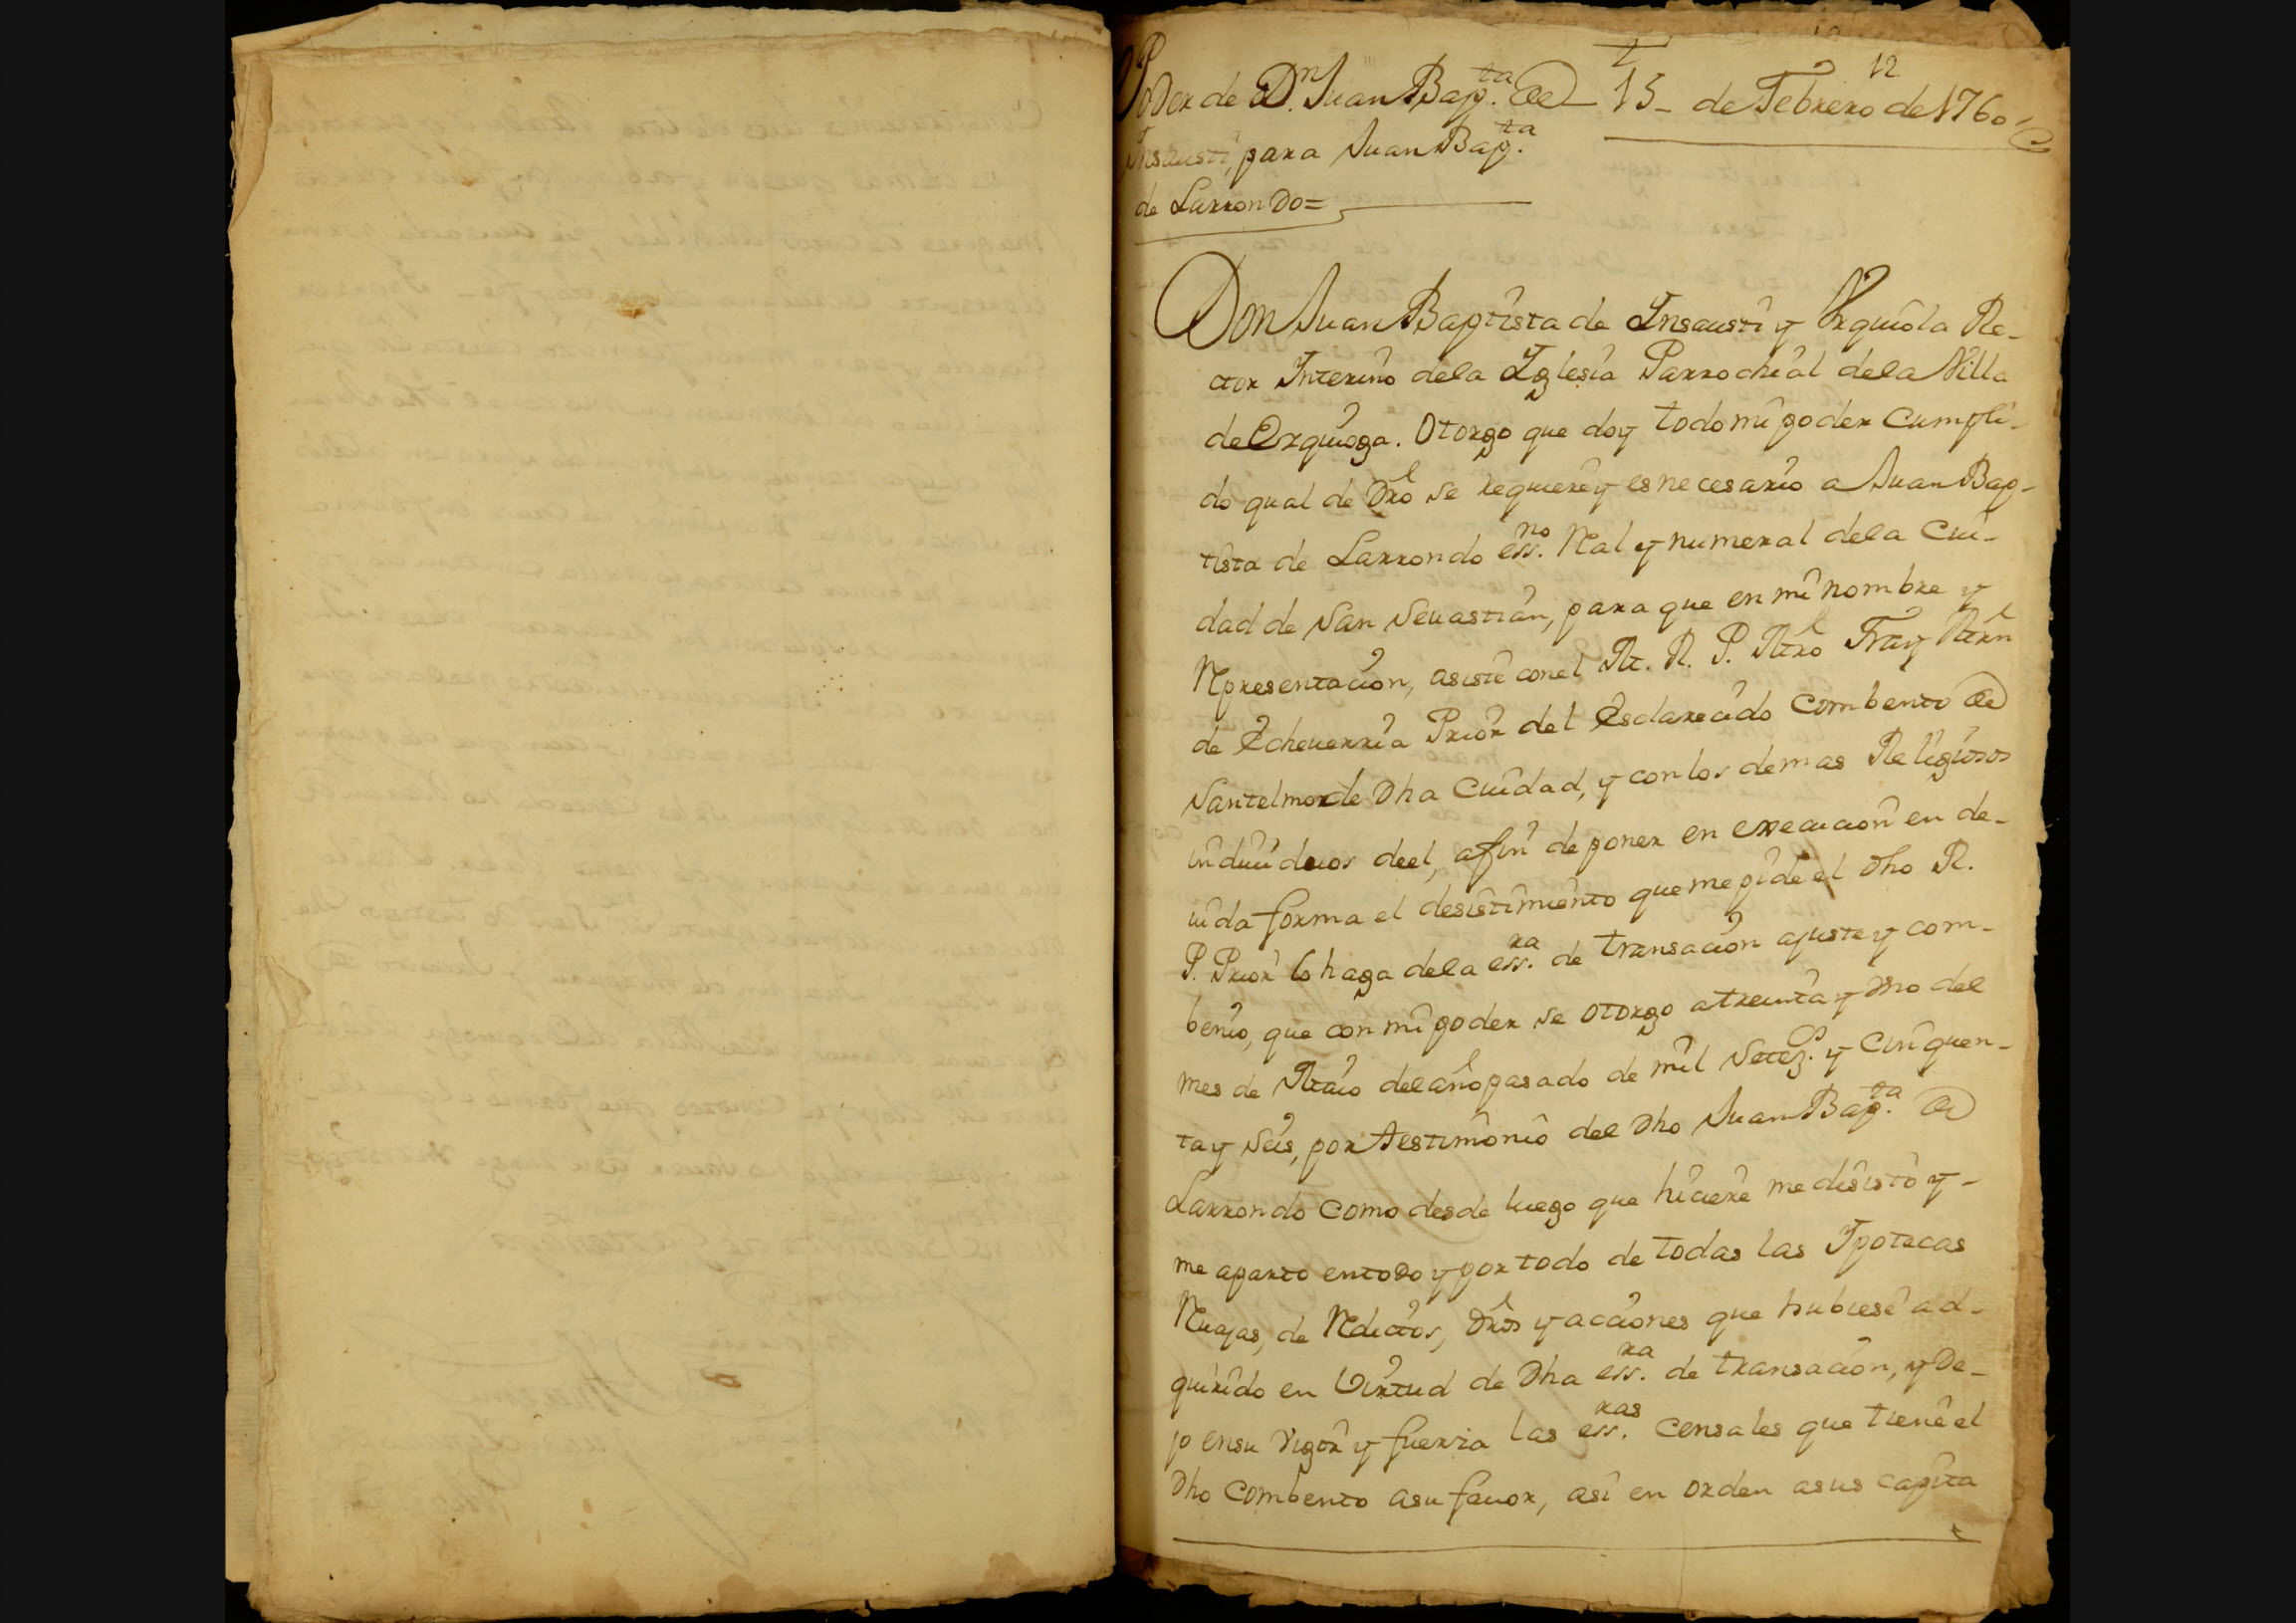 12
Poder de Dn. Juan Bapta. de 15 de Febrero de 1760
Insausti, para Juan Bapta.
de Larrondo=
Don Juan Baptista de Insausti y Urquiola Re-
ctor Interino dela Iglesia Parrochial dela Villa
de Ezquioga. Otorgo que doy todo mi poder Cumpli-
do qual de Dro se requiere y es necesario a Juan Bap-
tista de Larrondo essno. Ral y numeral dela Ciu-
dad de San Sevastian, para que en mi nombre y
Rpresentacion, asiste con el M. R. P. Mro Fray Mrn
de Echeverria Prior del Esclarecido Combento de
Santelmo de Dha Ciudad, y con los demas Religiosos
individuos deel, afin de poner en execucion en de-
uida forma el desistimiento que me pide el Dho R.
P. Prior lo haga dela essra. de transacion ajuste y com-
benio, que con mi poder se otorgo a treinta y uno del
mes de Maio del año pasado de mil Setez.os y Cinquen-
ta y Seis, por testimonio del Dho Juan Bapta. de
Larrondo como desde luego que hiciere me desisto y-
me aparto entodo y por todo de todas las Ipotecas
Ruajas, de Rditos, dros y acciones que hubiese ad-
quirido en Virtud de Dha essra. de transacion, y De-
jo ensu vigor y fuerza las essras. censales que tiene el
Dho Combento asu favor, asi en orden asus capita